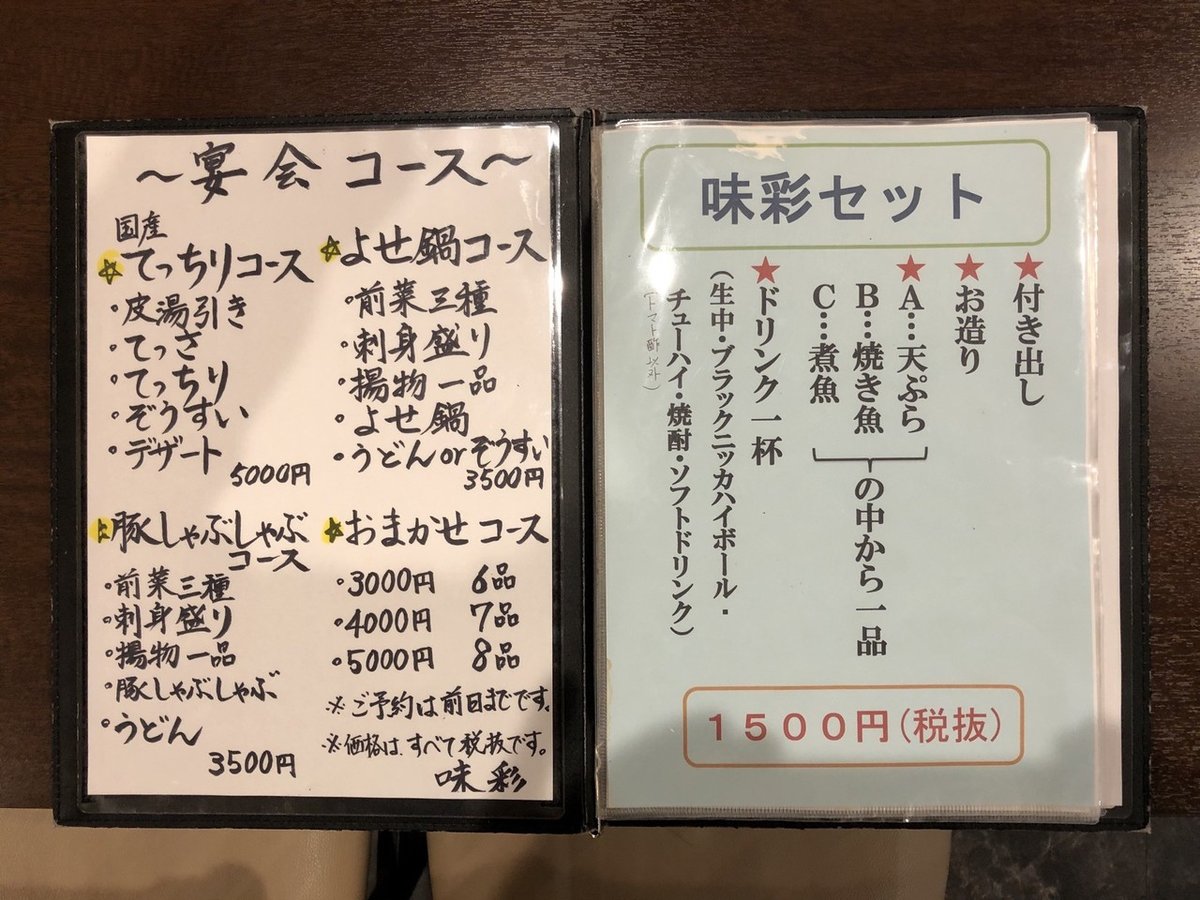 ～宴会コース～
国産
☆てっちりコース
・皮湯引き
・てっさ
・てっちり
・ぞうすい
・デザート
5000円
☆よせ鍋コース
・前菜三種
・刺身盛り
・揚物一品
・よせ鍋
・うどんorぞうすい
3500円
☆豚しゃぶしゃぶ
コース
・前菜三種
・刺身盛り
・揚物一品
・豚しゃぶしゃぶ
・うどん
3500円
☆おまかせコース
・3000円 6品
・4000円 7品
・5000円 8品
※ご予約は前日までです。
※価格は、すべて税抜です。
味彩
味彩セット
★付き出し
★お造り
★A…天ぷら
B…焼き魚
C…煮魚
の中から一品
★ドリンク一杯
（生中・ブラックニッカハイボール・
チューハイ・焼酎・ソフトドリンク）
（トマト酎以外）
１５００円（税抜）